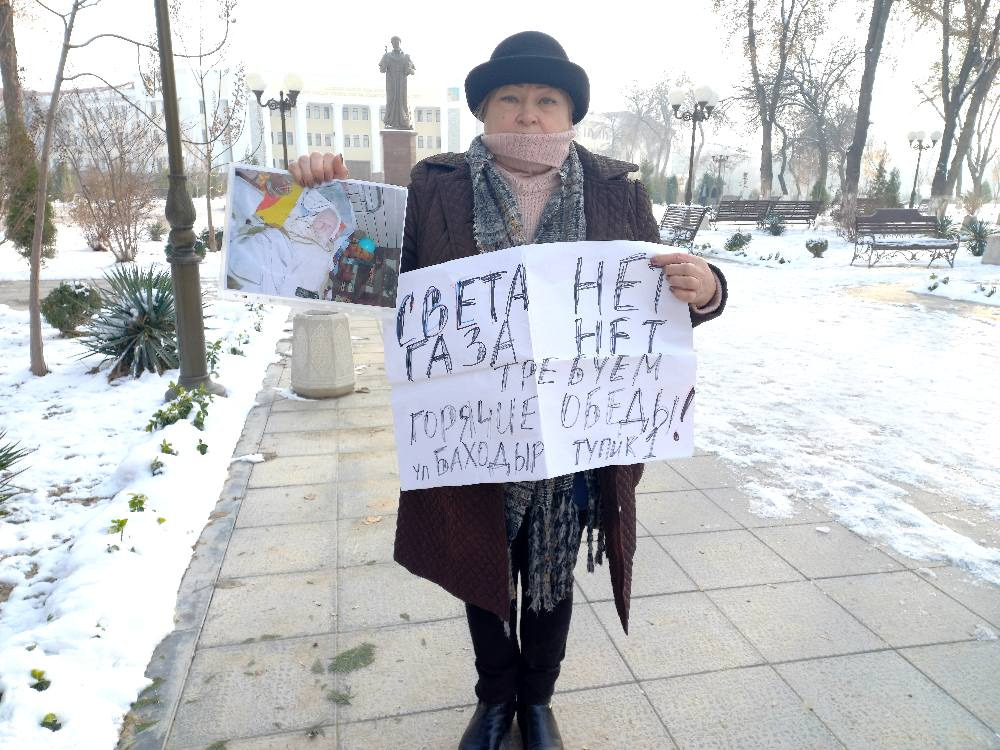 СВЕТА НЕТ
ГАЗА НЕТ
ТРЕБУЕМ
ГОРЯЧИЕ ОБЕДЫ!
УЛ БАХОДЫР ТУПИК 1